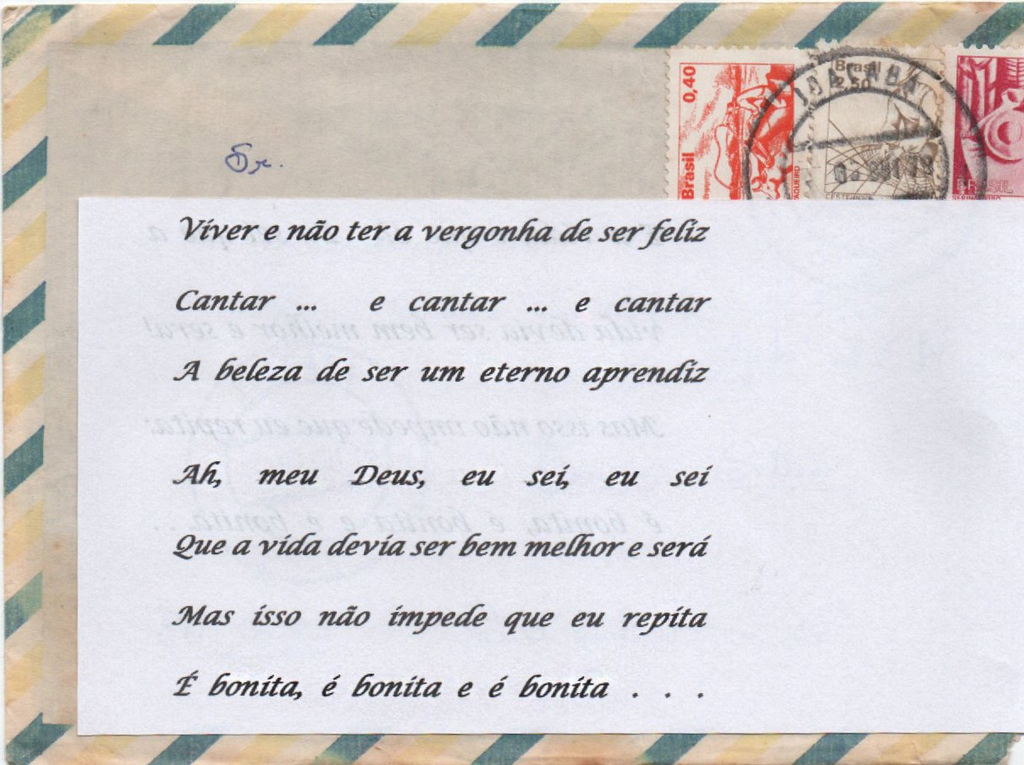 Brasil
0,40
Brasil
2,50
BRASIL
JOAÇABA
Sr.
Viver e não ter a vergonha de ser feliz
Cantar ... e cantar ... e cantar
A beleza de ser um eterno aprendiz
Ah, meu Deus, eu sei, eu sei
Que a vida devia ser bem melhor e será
Mas isso não impede que eu repita
É bonita, é bonita e é bonita . . .